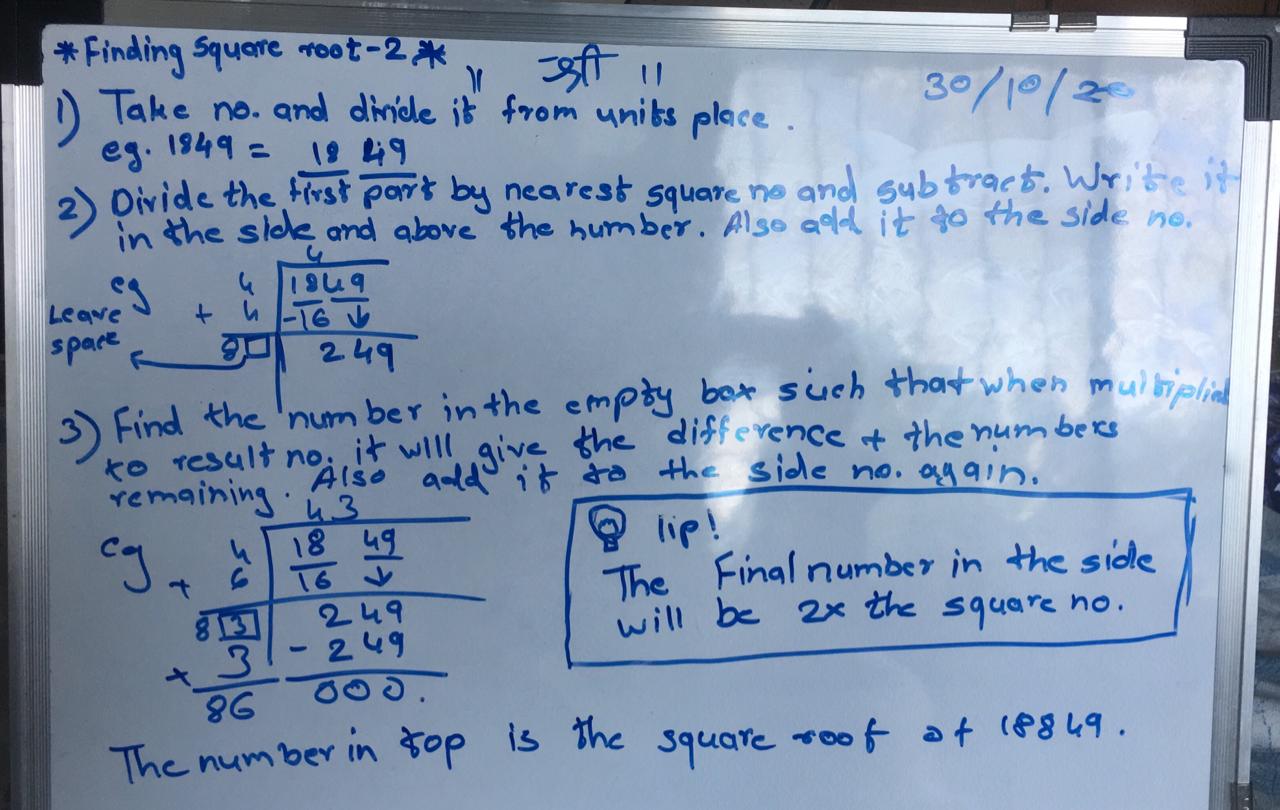 *Finding square root-2*
॥ श्री ॥
30/10/20
1) Take no. and divide it from units place.
eg. 1849 = 18 49
2) Divide the first part by nearest square no and subtract. Write it
in the side and above the number. Also add it to the side no.
4
eg 4 1849
Leave + 4 -16 ↓
space 8□ 249
3) Find the number in the empty box such that when multiplied
to result no. it will give the difference + the numbers
remaining. Also add it to the side no. again.
43
eg 4 18 49
+ 6 16 ↓
83 249
× 3 - 249
86 000.
Tip!
The Final number in the side
will be 2x the square no.
The number in top is the square roof of 18849.